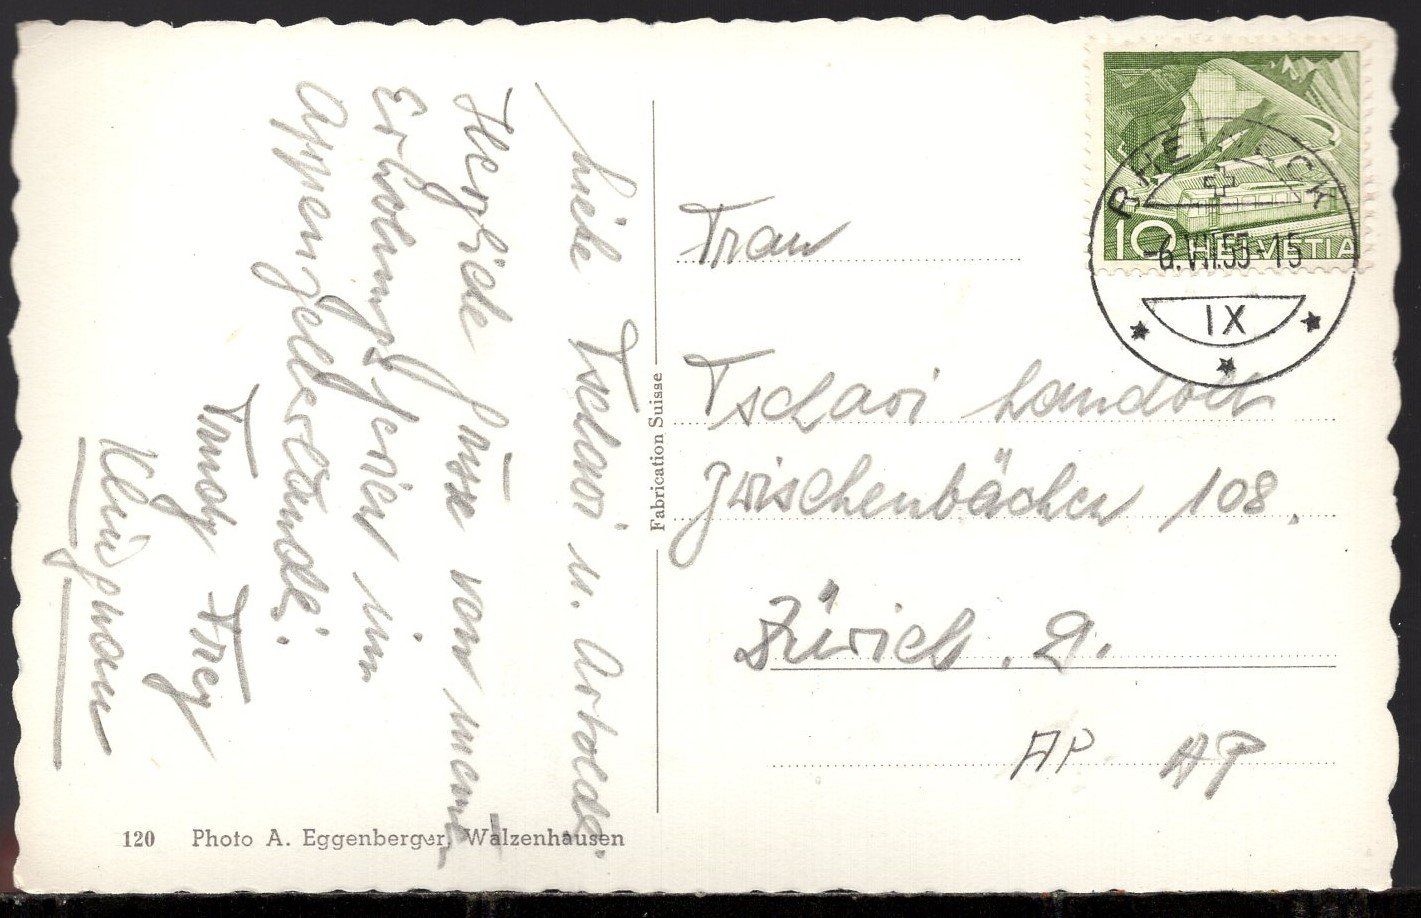 Liebe Tschavi u. Artoldi.
Herzliche Grüsse von meinen
Erholungsferien im
Appenzellerländli.
Trudy Frey
Klingmann
Frau
Tschavi Landolt
Zwischenbächen 108.
Zürich. 9.
AP AP
Fabrication Suisse
120 Photo A. Eggenberger, Walzenhausen
10 HELVETIA
RHEINECK
-6.VII.55-15
IX